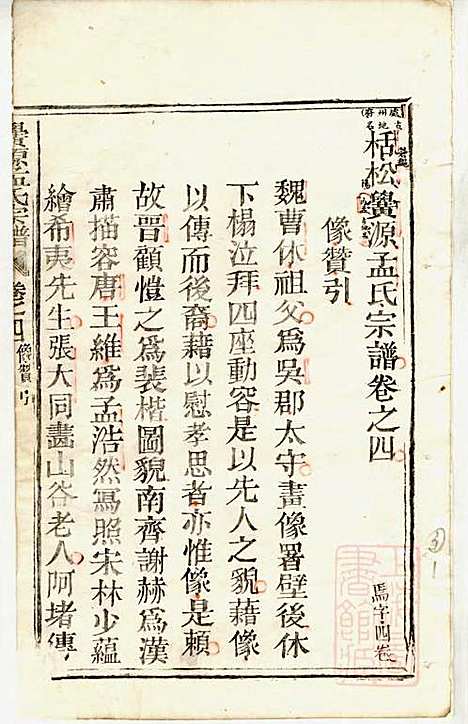 栝松黌源孟氏宗譜卷之四
馬字四卷
像贊引
魏曹休祖父爲吳郡太守畫像署壁後休
下榻泣拜四座動容是以先人之貌藉像
以傳而後裔藉以慰孝思者亦惟像是賴
故晋顧愷之爲裴楷圖貌南齊謝赫爲漢
肅描容唐王維爲孟浩然寫照宋林少蘊
繪希夷先生張大同畫山谷老人阿堵傳
黌源孟氏宗譜
卷之四
像贊引